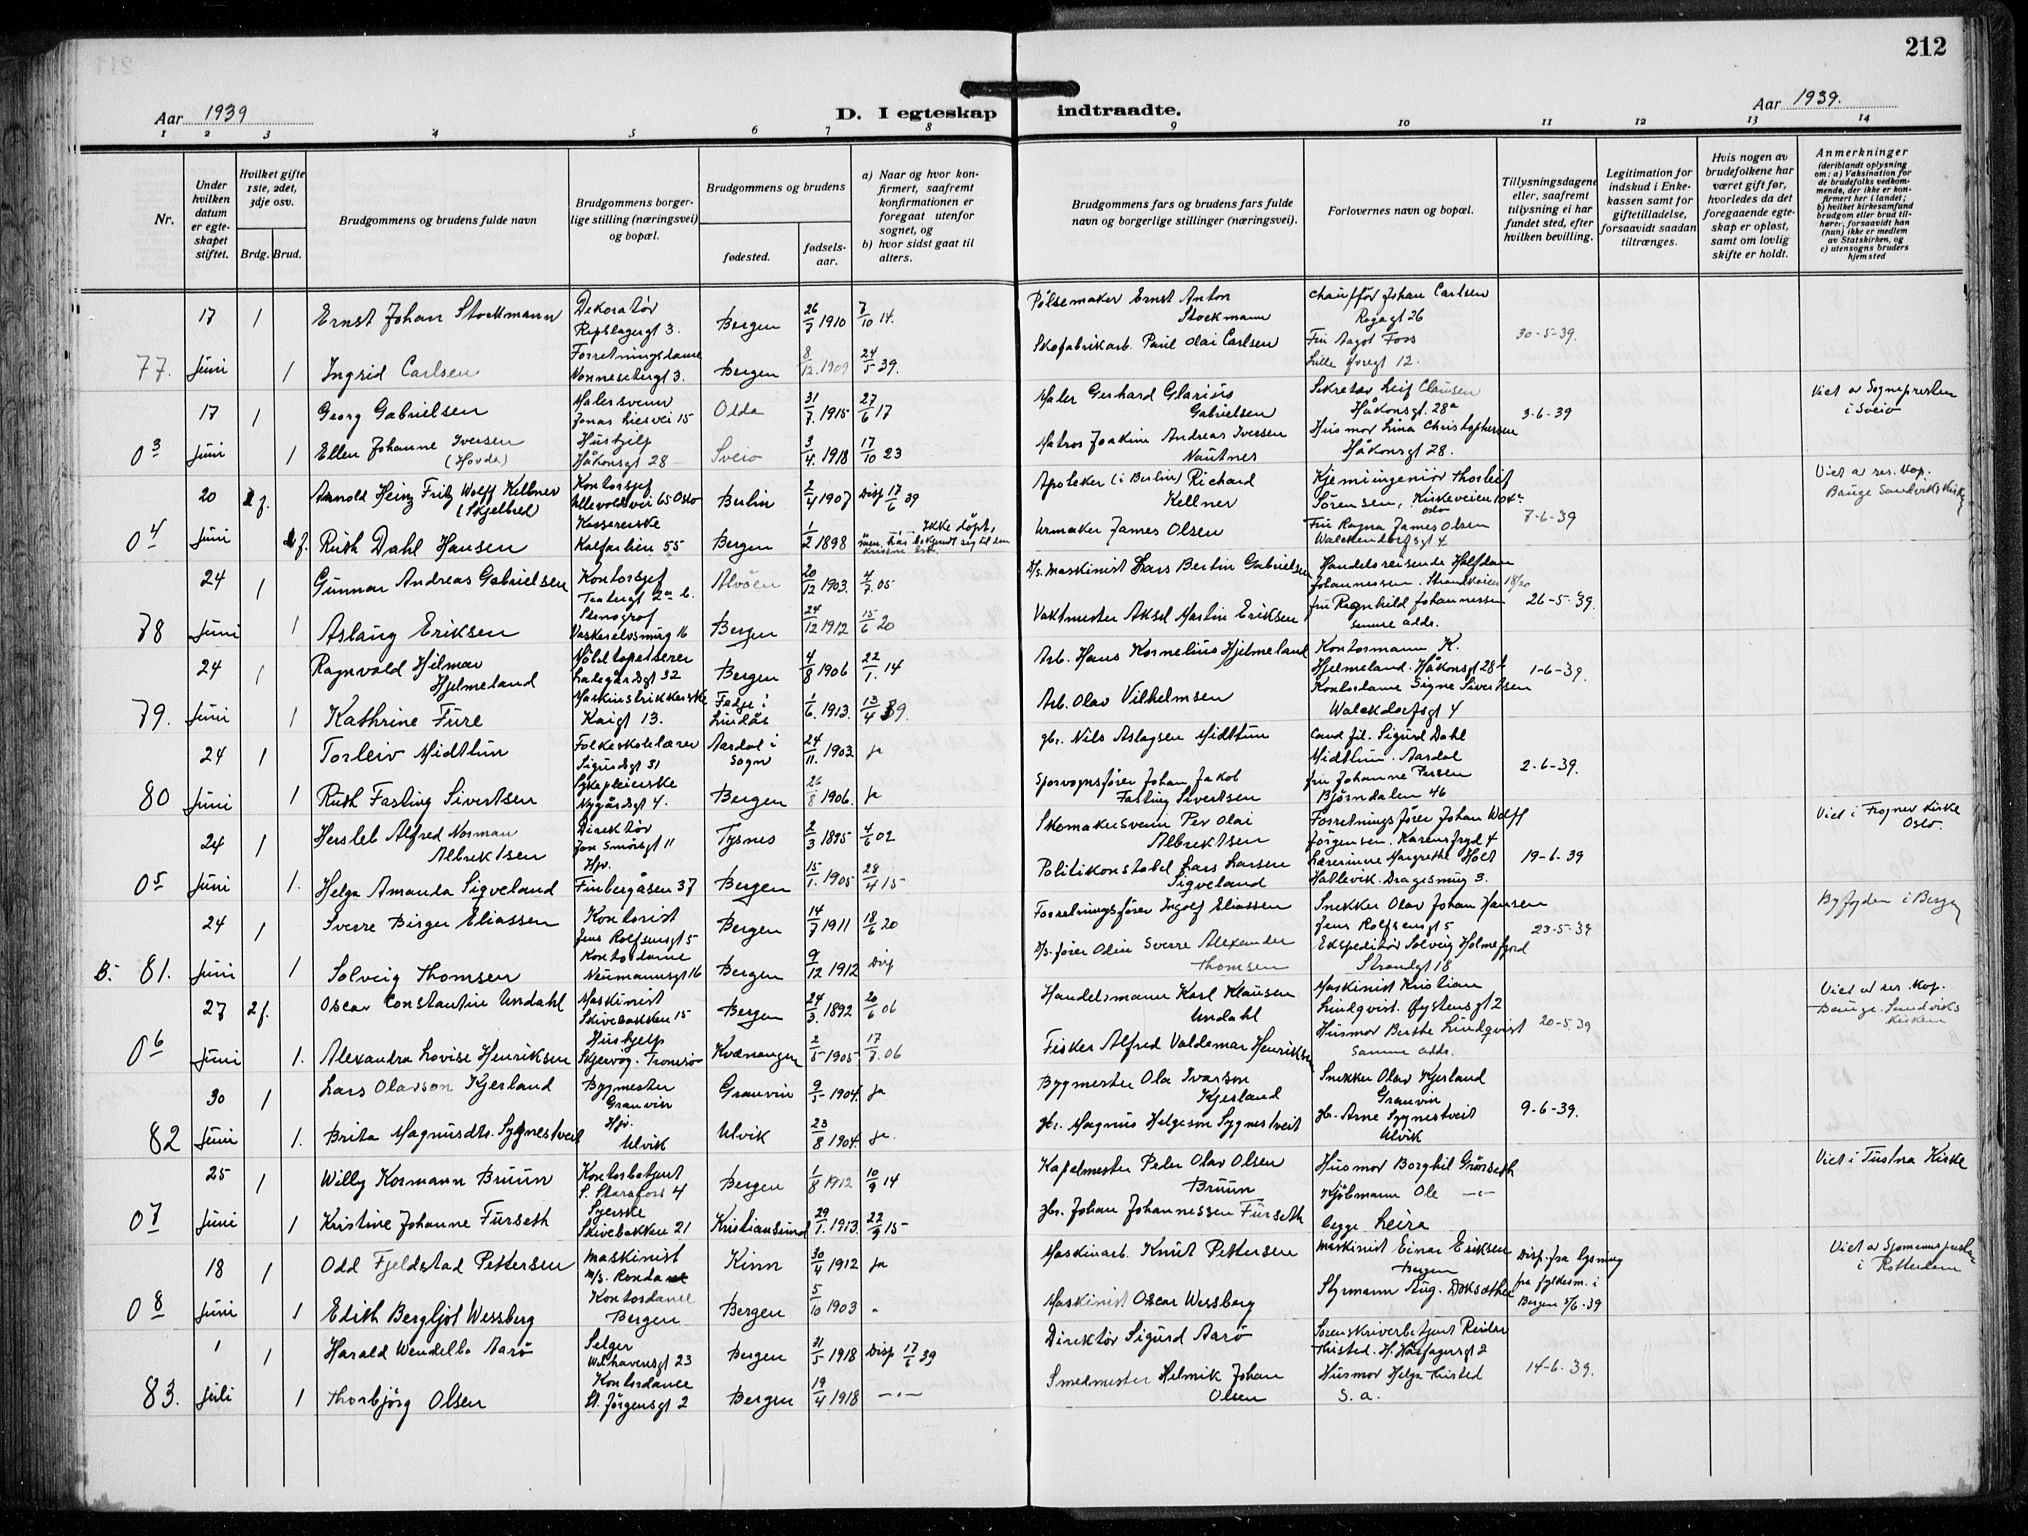 212
Aar 1939
D. I egteskap indtraadte.
Aar 1939.
1 2 3 4 5 6 7 8 9 10 11 12 13 14
Nr.
Under hvilken datum er egteskapet stiftet.
Hvilket gifte 1ste, 2det, 3dje osv.
Brdg. Brud.
Brudgommens og brudens fulde navn
Brudgommens borgerlige stilling (næringsvei) og bopæl.
Brudgommens og brudens
fødested.
fødselsaar.
a) Naar og hvor konfirmert, saafremt konfirmationen er foregaat utenfor sognet, og
b) hvor sidst gaat til alters.
Brudgommens fars og brudens fars fulde navn og borgerlige stillinger (næringsvei).
Forlovernes navn og bopæl.
Tillysningsdagene eller, saafremt tillysning ei har fundet sted, efter hvilken bevilling.
Legitimation for indskud i Enkekassen samt for giftetilladelse, forsaavidt saadan tiltrænges.
Hvis nogen av brudefolkene har været gift før, hvorledes da det foregaaende egteskap er opløst, samt om lovlig skifte er holdt.
Anmerkninger
(deriblandt oplysning om: a) Vaksination for de brudefolks vedkommende, der ikke er konfirmert her i landet; b) hvilket kirkesamfund brudgom eller brud tilhører, forsaavidt han (hun) ikke er medlem av Statskirken, og c) utensogns bruders hjemsted
17 1 Ernst Johan Stockmann Dekoratør Repslagergt 3. Bergen 26/7 1910 7/10 14. Pølsemaker Ernst Anton Stockmann Chauffør Johan Carlsen Rogagt 26 30-5-39.
77. Juni 1 Ingrid Carlsen Forretningsdame Nonnesetergt 3. Bergen 8/12 1909 24/5 39. Skofabrikarb. Paul Olai Carlsen Fru Aagot Foss Lille Øvregt 12.
17 1 Georg Gabrielsen Malersvenn Jonas Liesvei 15 Odda 31/7 1915 27/6 17 Maler Gerhard Glarius Gabrielsen Sekretær Leif Clausen Håkonsgt. 28a 3-6-39 Viet av Sognepresten i Sveio
0 3 Juni 1 Ellen Johanne Iversen (Hovda) Hushjelp Håkonsgt 28 Sveio 3/4 1918 17/10 23 Matros Joakim Andreas Iversen Nautnes Husmor Lina Christophersen Håkonsgt 28.
20 2 f. Arnold Heinz Fritz Wolff Kellner (Skjelbred) Kontorsjef Ullevoldsvei 65 Oslo Berlin 2/4 1907 Disp 17/6 39 Apoteker (i Berlin) Richard Kellner Kjemiingeniør Thorleif Sørensen, Kirkeveien 104a Oslo 7-6-39 Viet av res. Kap. Bauge Sandvikskirk
0 4 Juni 2 f. Ruth Dahl Hansen Kassererske Kalfarlien 55 Bergen 1/2 1898 Ikke døpt, men har bekjendt sig til den kristne tro. Urmaker James Olsen Fru Ragna James Olsen Walckendorfsgt 4
24 1 Gunnar Andreas Gabrielsen Kontorsjef Teatergt 2a b. Alvøen 20/12 1903. 4/7 05 D/s. Maskinist Lars Bertin Gabrielsen Handelsreisende Halfdan Johannessen. Strandveien 18/20 26-5-39.
78 Juni 1 Aslaug Eriksen Stenograf Vaskerelvssmug 16 Bergen 24/12 1912 15/6 20 Vaktmester Aksel Martin Eriksen Fru Ragnhild Johannessen samme adds.
24 1 Ragnvald Hilmar Hjelmeland Møbeltapetserer Ladegårdsgt 32 Bergen 4/8 1906 22/1. 14 Arb. Hans Kornelius Hjelmeland Kontormann K. Hjelmeland. Håkonsgt 28b 1-6-39.
79. Juni 1 Kathrine Fure Maskinstrikkerske Kaigt 13. Fedje i Lindås 1/6. 1913. 13/4 39. Arb. Olav Vilhelmsen Kontordame Signe Sivertsen Walckdorfsgt 4
24 1 Torleiv Midttun Folkeskolelærer Sigurdsgt 31 Aardal i Sogn 24/11. 1903. ja gbr. Nils Aslagsen Midttun Cand fil. Sigurd Dahl Midttun. Aardal 2-6-39.
80 Juni 1 Ruth Fasting Sivertsen Sykepleierske Nygårdsgt 4. Bergen 26/8 1906. ja Sporvognsfører Johan Jakob Fasting Sivertsen fru Johanne Persen Bjørndalen 46
24 1 Hersleb Alfred Norman Albrektsen Direktør Jon Smørsgt 11 Tysnes 2/3 1895 4/6 02 Skomakersvenn Per Olai Albrektsen Forretningsfører Johan Wolff Jørgensen. Karensfryd 4 19-6-39 Viet i Frogner Kirke Oslo.
0 5 Juni 1. Helga Amanda Sigveland Hpv. Finbergåsen 37 Bergen 15/1. 1905 28/4 15 Politikonstabel Lars Larsen Sigveland Lærerinne Margrethe Holt Hatlevik. Dragesmug 3.
24 1 Sverre Birger Eliassen Kontorist Jens Rolfsensgt 5 Bergen 14/7 1911 18/6 20 Forretningsfører Ingolf Eliassen Snekker Olav Johan Hansen Jens Rolfsensgt 5 23-5-39 Byfogden i Bergen
B. 81. Juni 1 Solveig Thomsen Kontordame Neumannsgt 16 Bergen 9/12 1912 Disp D/s. fører Odin Sverre Alexander Thomsen Ekspeditør Solveig Holmefjord Strandgt 18
27 2 f. Oscar Constantin Undahl Maskinist Skivebakken 15 Bergen 24/3. 1892 20/6 06 Handelsmann Karl Klausen Undahl Maskinist Kristian Lindqvist. Øystensgt 2 20-5-39 Viet av res Kap. Bauge. Sandvikskirken
0 6 Juni 1. Alexandra Lovise Henriksen Hushjelp Skjervøy. Tromsø Kvænangen 2/5 1905 17/7. 06 Fisker Alfred Valdemar Henriksen Husmor Berthe Lindqvist Samme adds.
30 1 Lars Olavson Kjerland Bygmester Granvin Granvin 9/5 1904. ja Bygmester Ola Ivarson Kjerland Snekker Olav Kjerland Granvin 9-6-39.
82 Juni 1. Brita Magnusdtr. Sygnestveit Hpv. Ulvik Ulvik 23/8 1904. ja. gbr. Magnus Helgeson Sygnestveit gbr. Arne Sygnestveit Ulvik
25 1 Willy Kormann Bruun Kontorbetjent S. Starefoss 4 Bergen 1/8 1912 10/9 14 Kapelmester Peder Olav Olsen Bruun Husmor Borghil Grønseth Viet i Tustna Kirke
0 7 Juni 1 Kristine Johanne Furseth Syerske Skivebakken 21 Kristiansund 29/1. 1913. 22/9 15 gbr. Johan Johannessen Furseth Kjøbmann Ole —"— begge Leira
18 1 Odd Fjeldstad Pettersen Maskinist m/s. Ronda Kinn 30/4 1912 ja Maskinarb. Knut Pettersen Maskinist Einar Eriksen Bergen Disp. fra lysning fra fylkesm. i Bergen 5/6-39 Viet av Sjømannspresten i Rotterdam
0 8 Juni 1 Edith Bergljot Wessberg Kontordame Bergen Bergen 5/10 1903 " Maskinist Oscar Wessberg Styrmann Aug. Doksæther
1 1 Harald Wendelbo Aarø Selger Welhavensgt 23 Bergen 31/5 1918 Disp 17/6 39 Direktør Sigurd Aarø Sorenskriverbetjent Reidar Thisted. H. Hårfagersgt 2 14-6-39.
83. Juli 1 Thorbjørg Olsen Kontordame St. Jørgensgt 2 Bergen 19/4 1918 —"— Smedmester Helmik Johan Olsen Husmor Helga Thisted s. a.